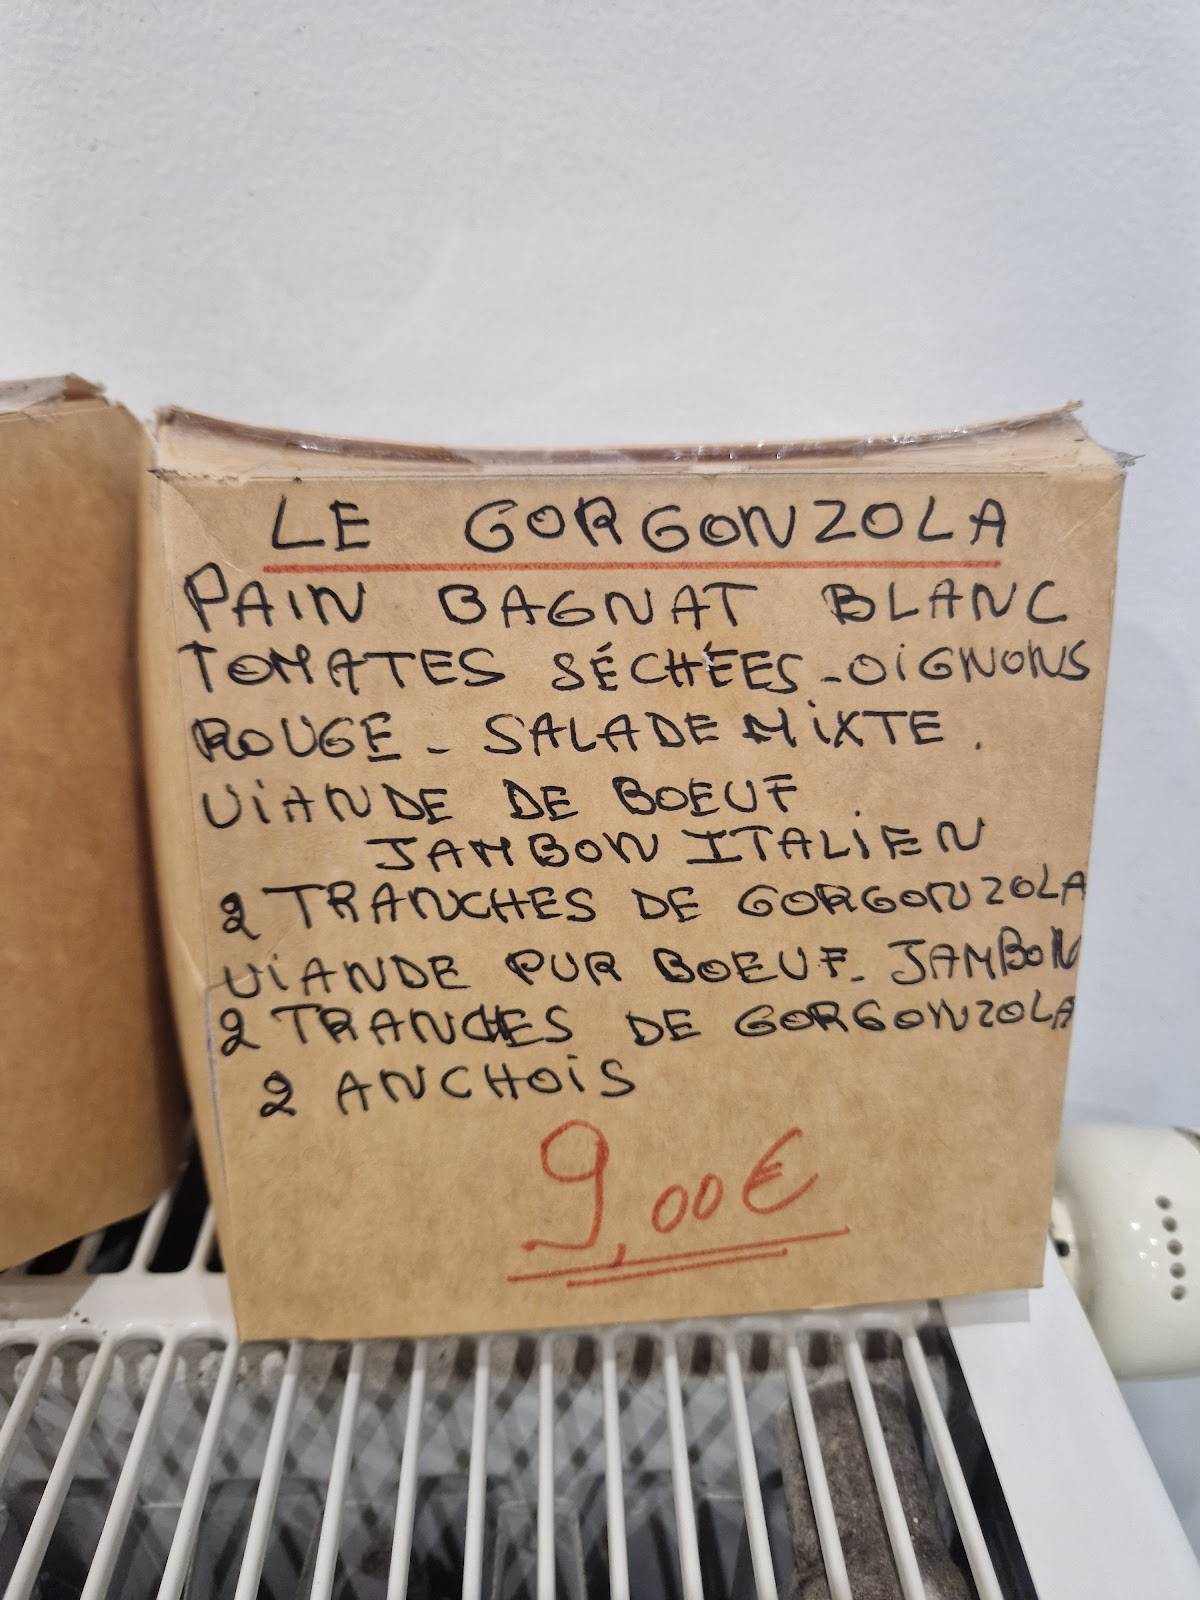 LE GORGONZOLA
PAIN BAGNAT BLANC
TOMATES SÉCHÉES - OIGNONS
ROUGE - SALADE MIXTE.
VIANDE DE BOEUF.
JAMBON ITALIEN
2 TRANCHES DE GORGONZOLA
VIANDE PUR BOEUF - JAMBON
2 TRANCHES DE GORGONZOLA
2 ANCHOIS
9,00€